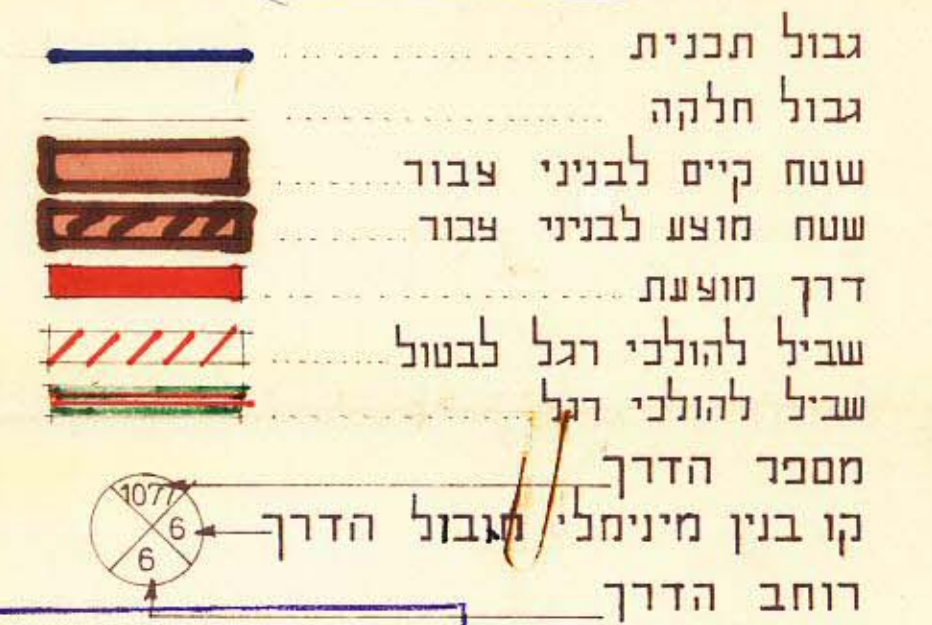 גבול תכנית
גבול חלקה
שטח קיים לבניני צבור
שטח מוצע לבניני צבור
דרך מוצעת
שביל להולכי רגל לבטול
שביל להולכי רגל
מספר הדרך
1077
קו בנין מינימלי מגבול הדרך
6
רוחב הדרך
6